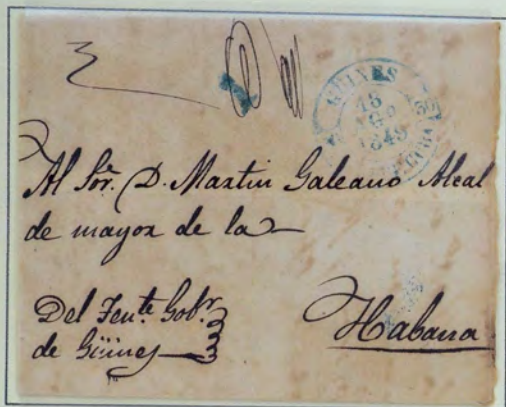 GÜINES
18
AGO
1849
CUBA
Al Sor. D. Martin Galeano Alcal
de mayor de la
Del Tente. Gobr.
de Güines
Habana